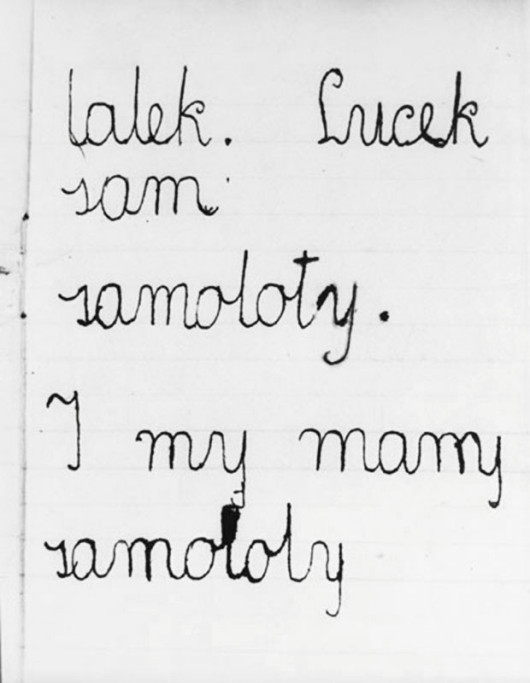 lalek. Lucek
sam
samoloty.
I my mamy
samololy